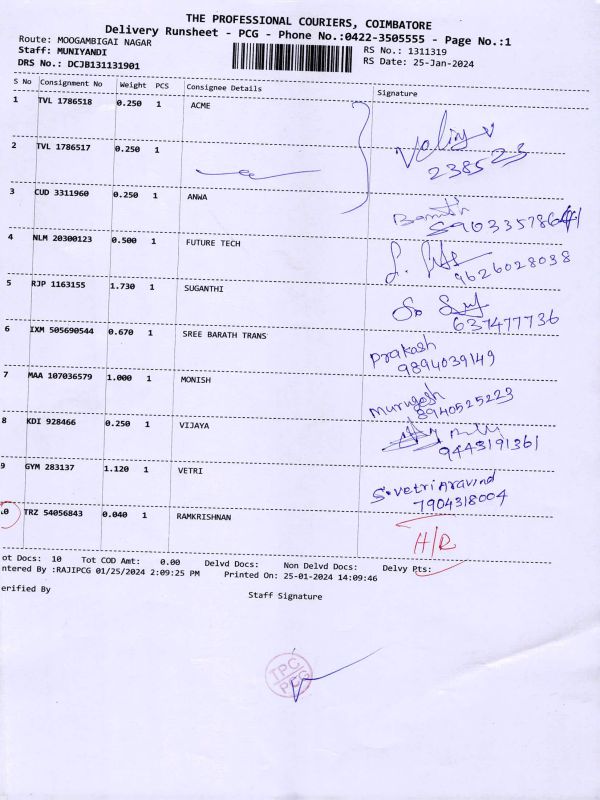 THE PROFESSIONAL COURIERS, COIMBATORE
Delivery Runsheet - PCG - Phone No.:0422-3505555 - Page No.:1
Route: MOOGAMBIGAI NAGAR
RS No.: 1311319
Staff: MUNIYANDI
RS Date: 25-Jan-2024
DRS No.: DCJB131131901
S No Consignment No Weight PCS Consignee Details Signature
1 TVL 1786518 0.250 1 ACME
2 TVL 1786517 0.250 1
238523
3 CUD 3311960 0.250 1 ANWA
4 NLM 20300123 0.500 1 FUTURE TECH
9626028038
5 RJP 1163155 1.730 1 SUGANTHI
637477736
6 IXM 505690544 0.670 1 SREE BARATH TRANS
Prakash
9894039149
7 MAA 107036579 1.000 1 MONISH
Murugesh
8940525223
8 KDI 928466 0.250 1 VIJAYA
9443191361
9 GYM 283137 1.120 1 VETRI
S.vetri Aravind
7904318004
10 TRZ 54056843 0.040 1 RAMKRISHNAN
H/R
ot Docs: 10 Tot COD Amt: 0.00 Delvd Docs: Non Delvd Docs: Delvy Pts:
ntered By :RAJIPCG 01/25/2024 2:09:25 PM Printed On: 25-01-2024 14:09:46
erified By
Staff Signature
TPC
PCG